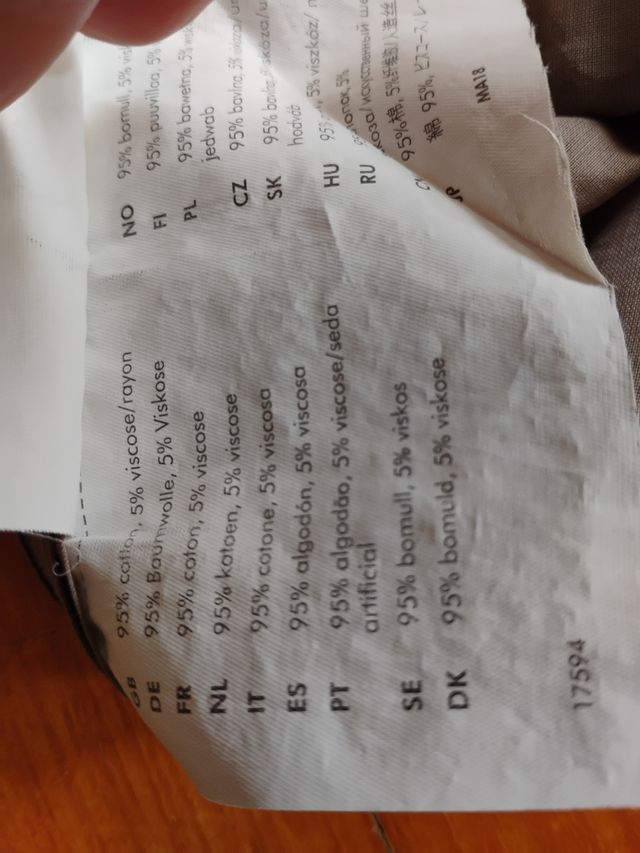 GB 95% cotton, 5% viscose/rayon
DE 95% Baumwolle, 5% Viskose
FR 95% coton, 5% viscose
NL 95% katoen, 5% viscose
IT 95% cotone, 5% viscosa
ES 95% algodón, 5% viscosa
PT 95% algodão, 5% viscose/seda
artificial
SE 95% bomull, 5% viskos
DK 95% bomuld, 5% viskose
17594
NO 95% bomull, 5%
FI 95% puuvillaa, 5%
PL 95% bawełna, 5%
jedwab
CZ 95% bavlna, 5%
SK 95%
hodváb
HU 5% viszkóz/
RU 5%
95%棉, 5%
綿 95%, ビスコース/レー
MA18